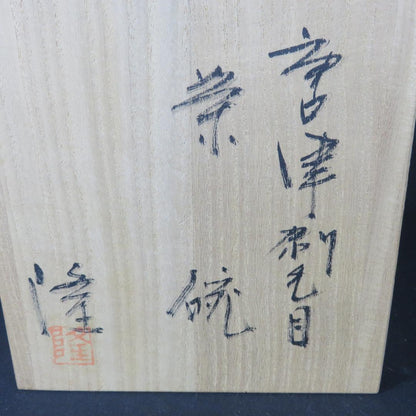 唐津刷毛目
茶碗
隆
隆